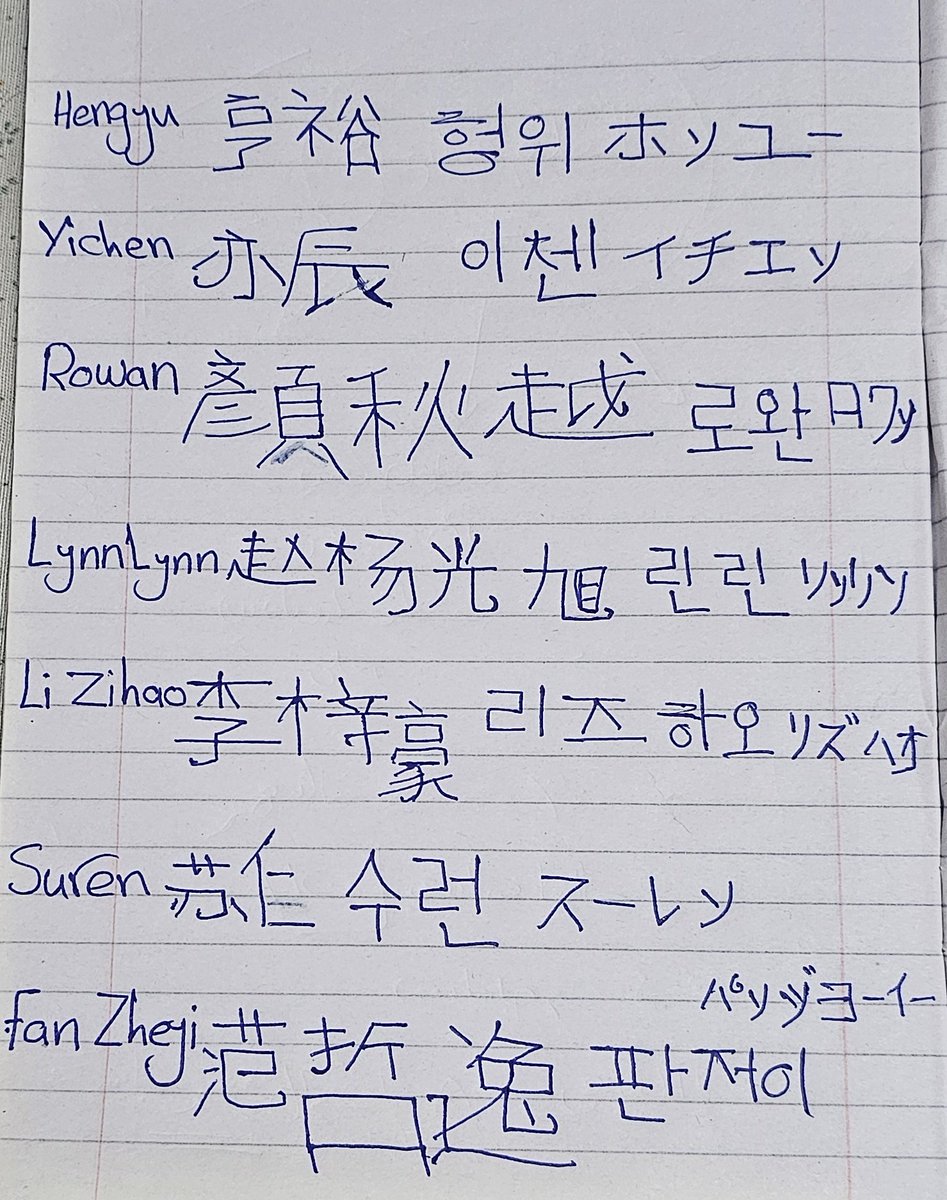 Hengyu 亨裕 형위 ホンユー
Yichen 亦辰 이첸 イチエン
Rowan 顏秋越 로완 ロワン
LynnLynn 赵杨光旭 린린 リンリン
Li Zihao 李梓豪 리즈하오 リズハオ
Suren 苏仁 수런 スーレン
パンヅヨーイー
Fan Zheyi 范哲逸 판저이